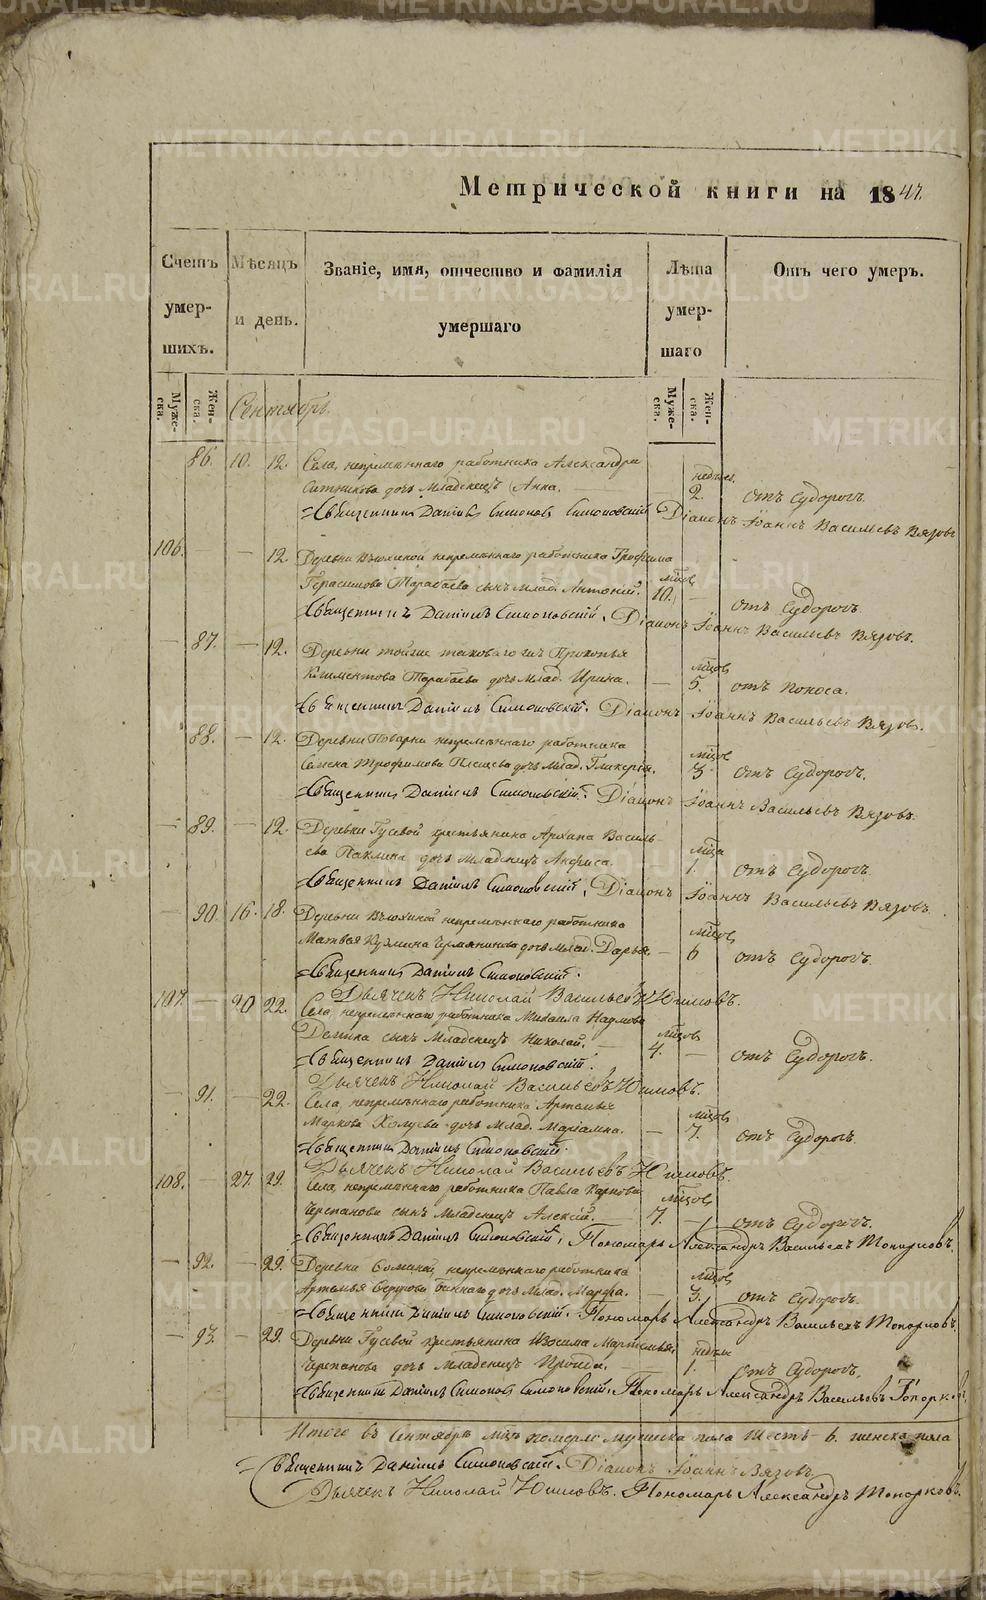 METRIKI.GASO-URAL.RU
Метрической книги на 1847.
Счетъ умер- шихъ.
Мѣсяцъ и день.
Званіе, имя, отчество и фамилія умершаго
Лѣта умер- шаго
Отъ чего умеръ.
Муже- ска.
Жен- ска.
Муже- ска.
Жен- ска.
Сентябрь.
86. 10. 12. Села, непремѣннаго работника Александра
Ситникова дочь младенецъ Анна. — недѣл. 2. отъ судорогъ.
Священникъ Даніилъ Симоновъ Симоновскій Діаконъ Іоаннъ Васильевъ Вязовъ
106. — — 12. Деревни непремѣннаго работника Трофима
Герасимова Тарабаева сынъ млад. Антоній. мѣсяц. 10. — отъ судорогъ
Священникъ Даніилъ Симоновскій. Діаконъ Іоаннъ Васильевъ Вязовъ.
— 87. — 12. Деревни тойже таковаго жъ Прокопья
Климентова Тарабаева дочь млад. Ирина. — мѣсцов 5. отъ поноса.
Священникъ Даніилъ Симоновскій. Діаконъ Іоаннъ Васильевъ Вязовъ.
88. — 12. Деревни Поварни непремѣннаго работника
Семена Трофимова дочь млад. Гликерія. мѣсцов 3 отъ судорогъ.
Священникъ Даніилъ Симоновскій. Діаконъ Іоаннъ Васильевъ Вязовъ.
— 89. — 12. Деревни Гусевой крестьянина Архипа Василь-
ева Паклина дочь младенецъ Анфиса. мѣсца 1. отъ судорогъ.
Священникъ Даніилъ Симоновскій, Діаконъ Іоаннъ Васильевъ Вязовъ.
— 90. 16. 18. Деревни непремѣннаго работника
Матвея Кузмина дочь млад. Дарья. — мѣсцов 6 отъ судорогъ.
Священникъ Даніилъ Симоновскій.
Дьячекъ Николай Васильевъ Юшмовъ.
107. — 20 22. Села, непремѣннаго работника Михаила Наумова
Демина сынъ младенецъ Николай. — мѣсцов 4. — отъ судорогъ.
Священникъ Даніилъ Симоновскій.
Дьячекъ Николай Васильевъ Юшмовъ.
— 91. — 22. Села, непремѣннаго работника Артемья
Маркова дочь млад. Маріамна. — мѣсцов 7. отъ судорогъ.
Священникъ Даніилъ Симоновскій
Дьячекъ Николай Васильевъ Юшмовъ.
108. — 27. 29. Села, непремѣннаго работника Павла Карпова
Черепанова сынъ младенецъ Алексій. — мѣсцов 7. — отъ судорогъ.
Священникъ Даніилъ Симоновскій, Пономарь Александръ Васильевъ Топорковъ.
— 92. — 29. Деревни непремѣннаго работника
Артемья дочь млад. Марфа. — мѣсцов 3. отъ судорогъ.
Священникъ Даніилъ Симоновскій. Пономарь Александръ Васильевъ Топорковъ.
— 93. — 29. Деревни Гусевой крестьянина Изосима
Черепанова дочь младенецъ — недѣли 1. отъ судорогъ.
Священникъ Даніилъ Симоновъ Симоновскій. Пономарь Александръ Васильевъ Топорков
Итого въ Сентябрѣ мцѣ померло мужеска пола шесть — 6. женска пола
Священникъ Даніилъ Симоновскій. Діаконъ Іоаннъ Вязовъ.
Дьячекъ Николай Юшмовъ. Пономарь Александръ Топорковъ.